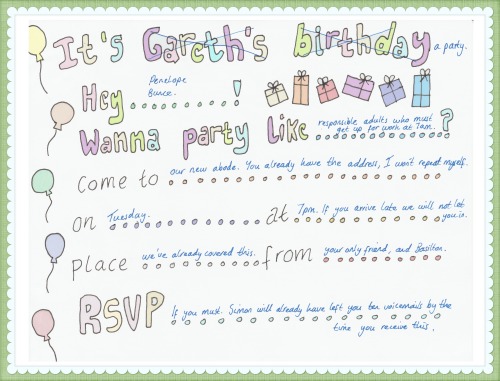 It's Gareth's birthday a party.
Hey Penelope
Bunce. !
Wanna party like responsible adults who must
get up for work at 7am. ?
come to our new abode. You already have the address, I won't repeat myself.
on Tuesday. at 7pm. If you arrive late we will not let
you in.
place we've already covered this. from your only friend, and Basilton.
RSVP If you must. Simon will already have left you ten voicemails by the
time you receive this.